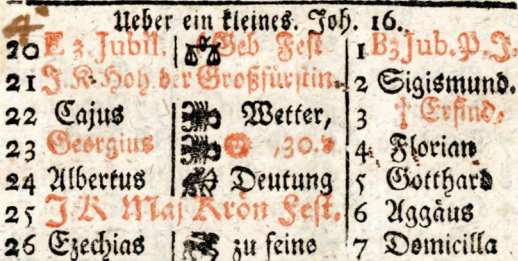 Ueber ein kleines. Joh. 16.
20 E 3. Jubil. Geb Fest 1 B3 Jub. P. J.
21 J. K. Hoh. der Großfürstin. 2 Sigismund.
22 Cajus Wetter, 3 † Erfind.
23 Georgius ,30. 4 Florian
24 Albertus Deutung 5 Gotthard
25 J. K Maj Krön Fest. 6 Aggäus
26 Ezechias zu feine 7 Domicilla